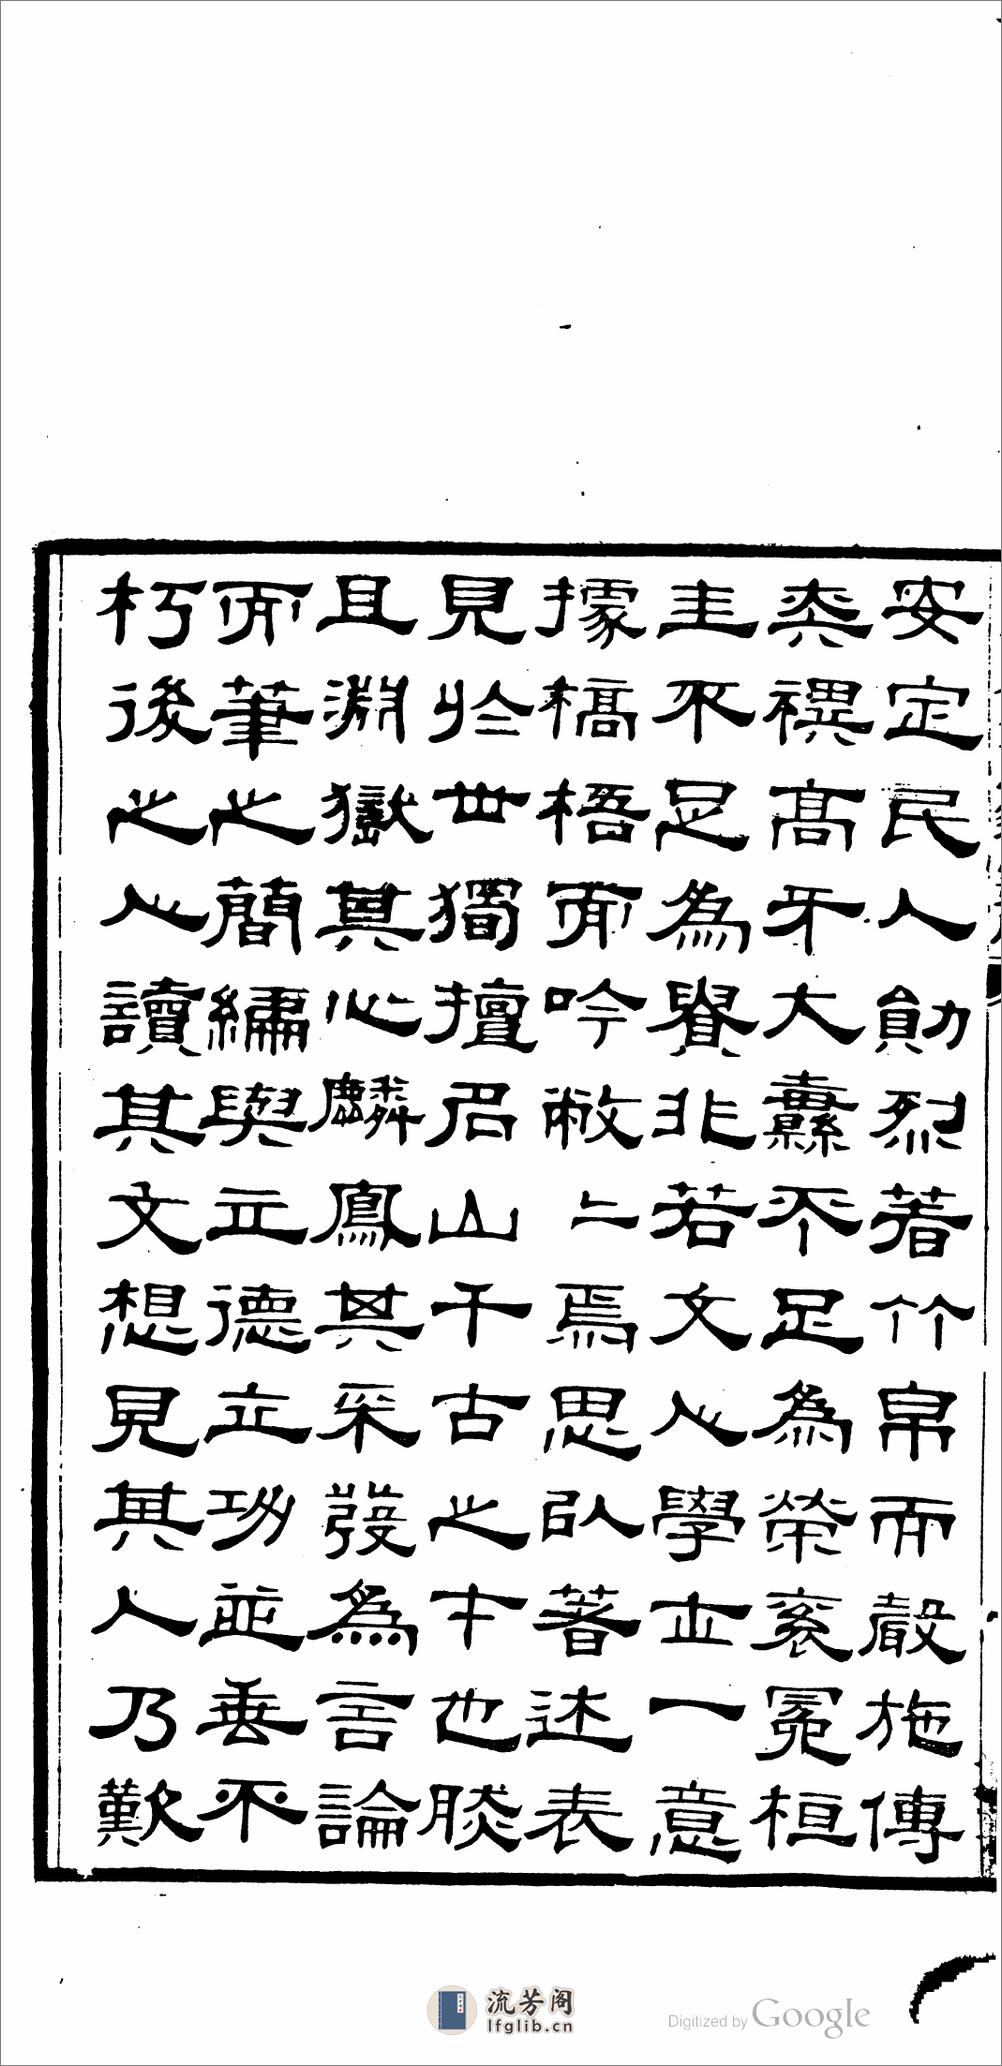 安定民人勛烈著竹帛而聲施傳
奕禩高牙大纛不足為榮袞冕桓
圭不足為貴非若文人學士一意
據槁梧而吟敝〻焉思以著述表
見於世獨擅名山千古之才也
且淵嶽其心麟鳳其采發為言論
而筆之簡編與立德立功並垂不
朽後之人讀其文想見其人乃歎
流芳阁
lfglib.cn
Digitized by Google